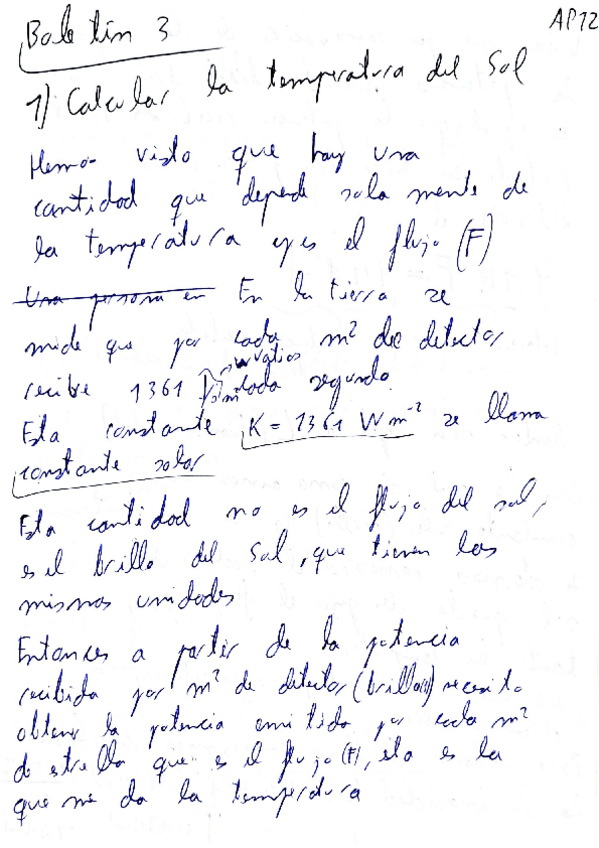 AP12
Boletín 3
1) Calcular la temperatura del Sol
Hemos visto que hay una
cantidad que depende solamente de
la temperatura y es el flujo (F)
Una persona en En la tierra se
mide que por cada m² de detector
vatios
recibe 1361 cada segundo
Esta constante K = 1361 W m⁻² se llama
constante solar
Esta cantidad no es el flujo del sol,
es el brillo del Sol, que tienen las
mismas unidades
Entonces a partir de la potencia
recibida por m² de detector (brillo) necesito
obtener la potencia emitida por cada m²
de estrella que es el flujo (F), esta es la
que me da la temperatura